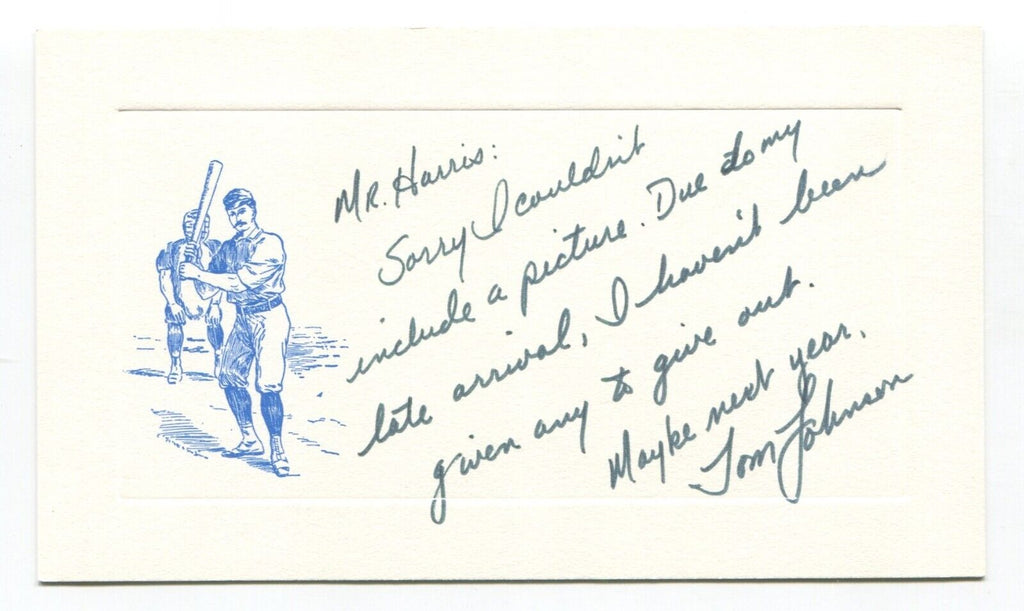 MR. Harris:
Sorry I couldn't
include a picture. Due to my
late arrival, I haven't been
given any to give out.
Mayke next year.
Tom Johnson